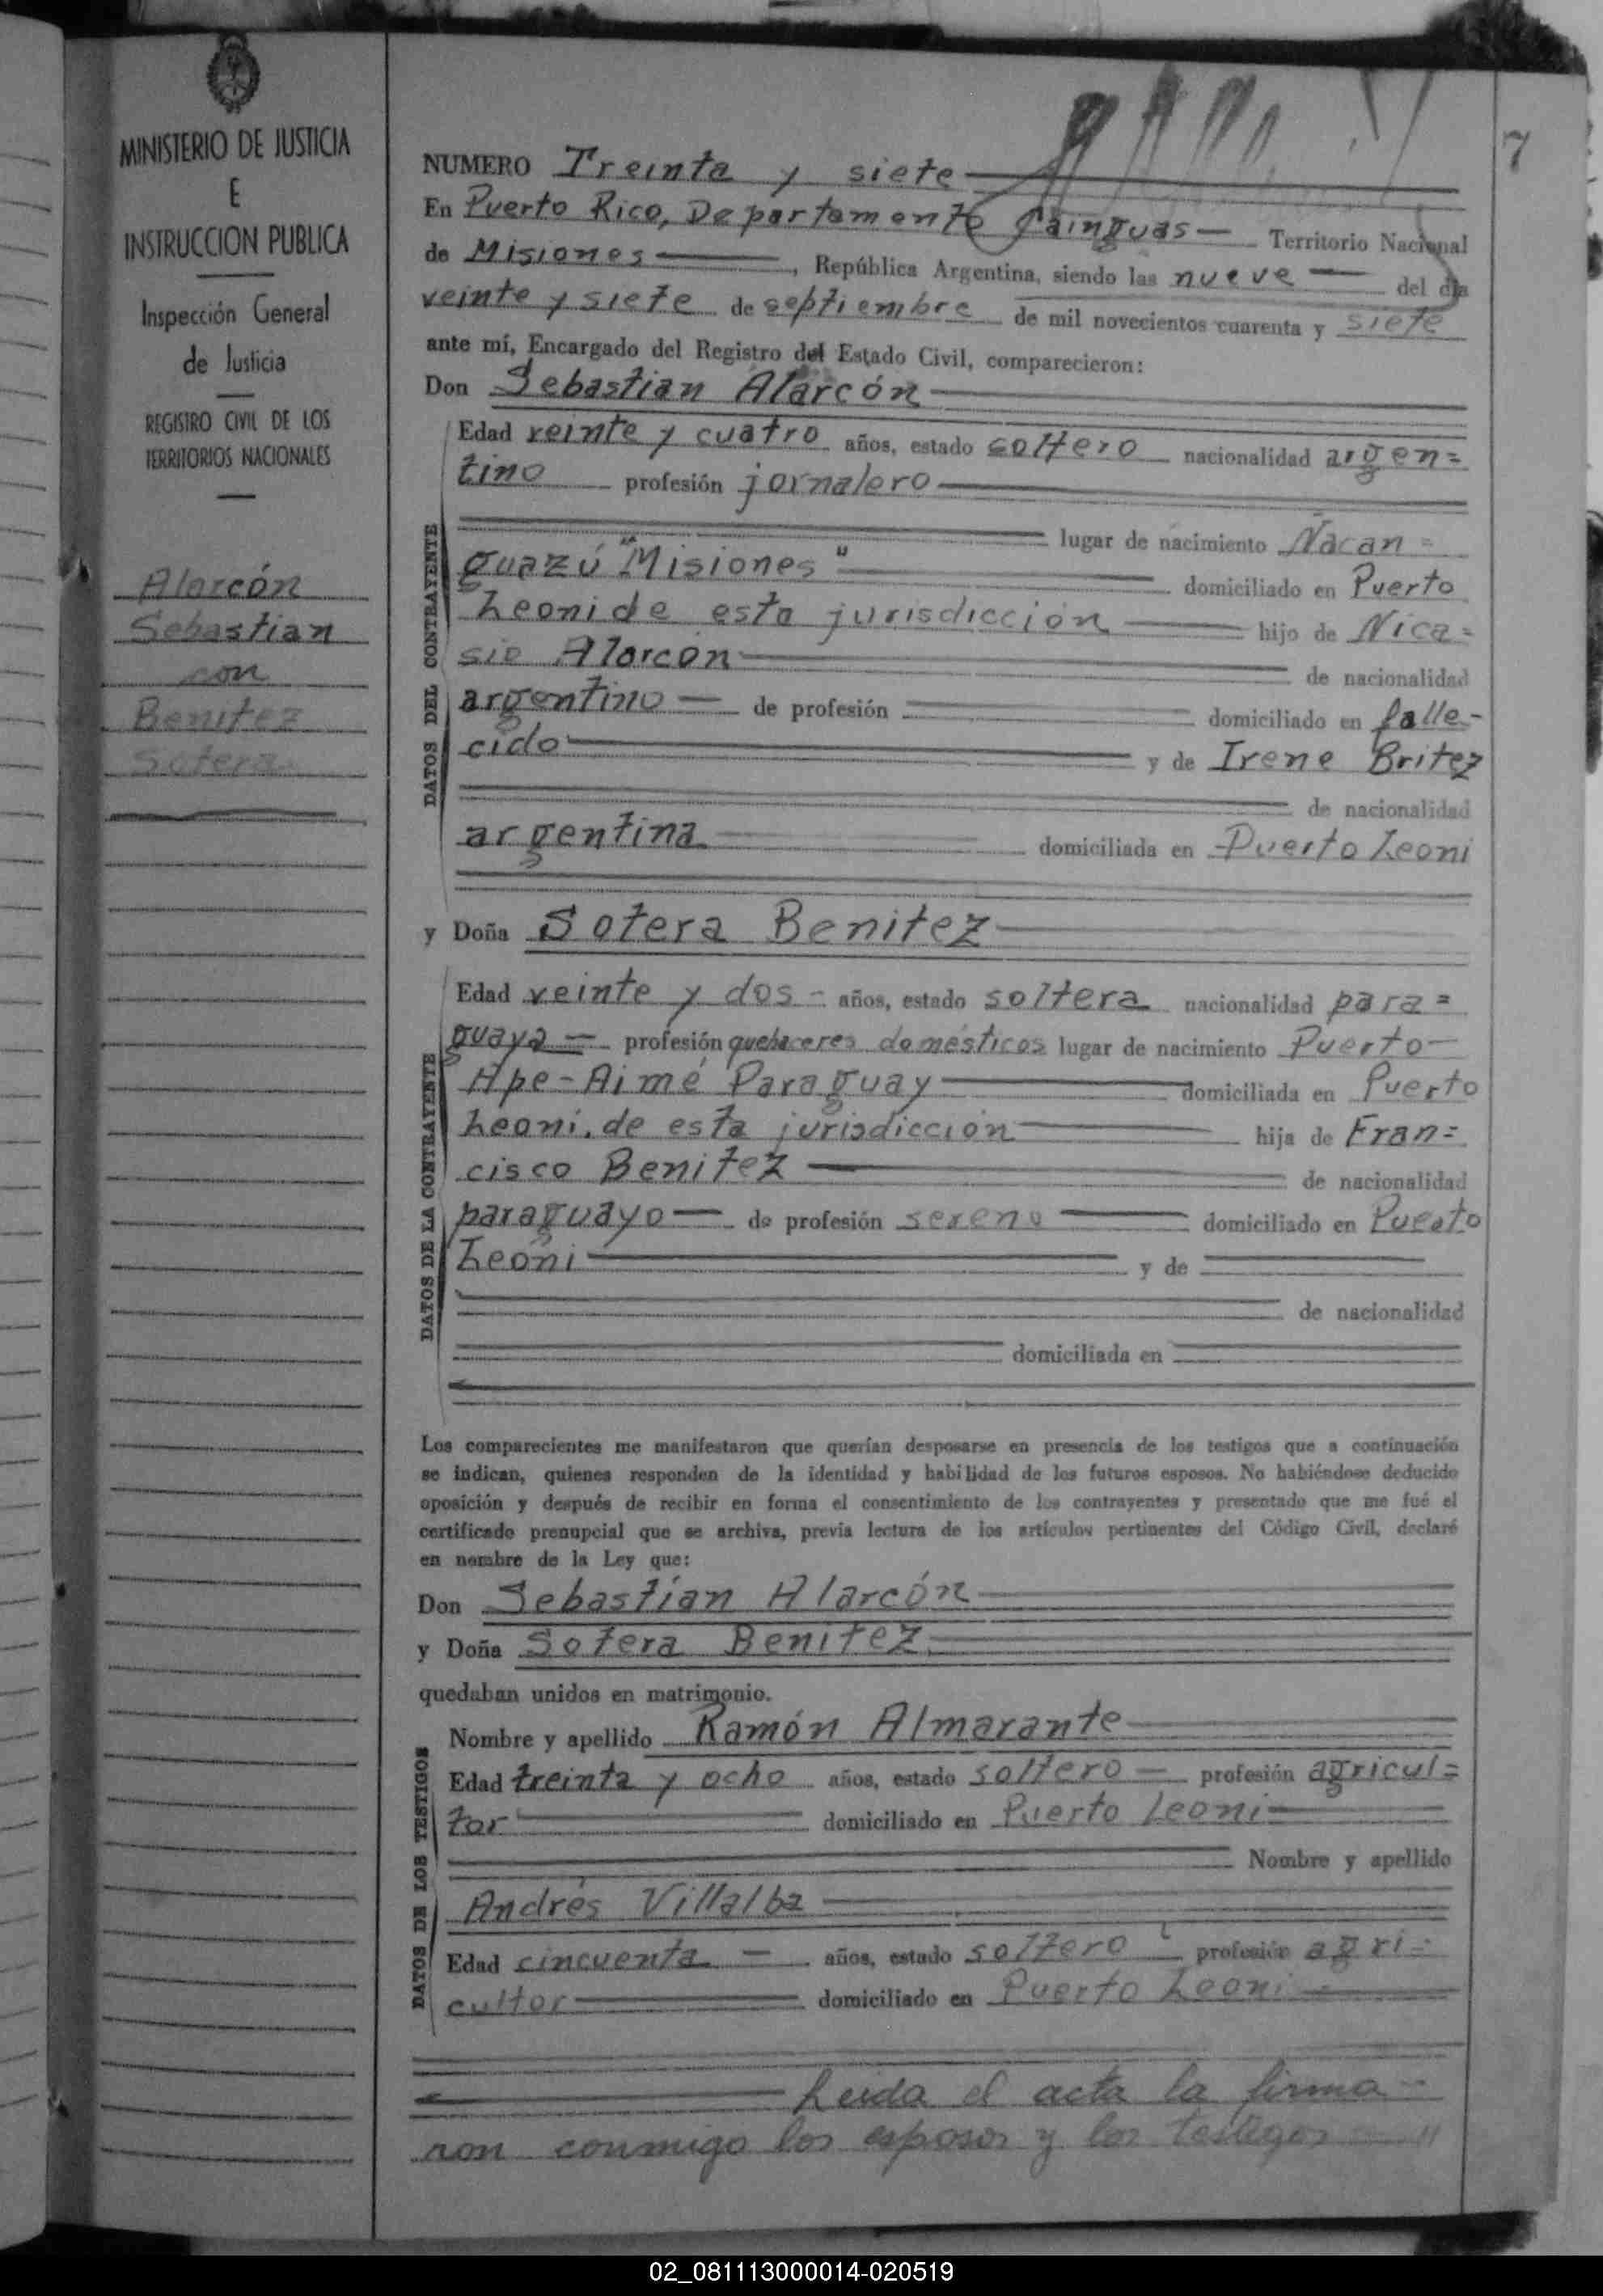 MINISTERIO DE JUSTICIA
E
INSTRUCCION PUBLICA
Inspección General
de Justicia
REGISTRO CIVIL DE LOS
TERRITORIOS NACIONALES
Alarcón
Sebastian
con
Benitez
Sotera
7
NUMERO Treinta y siete
En Puerto Rico, Departamento Cainguas — Territorio Nacional
de Misiones —, República Argentina, siendo las nueve — del día
veinte y siete de septiembre de mil novecientos cuarenta y siete
ante mí, Encargado del Registro del Estado Civil, comparecieron:
Don Sebastian Alarcón
DATOS DEL CONTRAYENTE
Edad veinte y cuatro años, estado soltero nacionalidad argen=
tino profesión jornalero
lugar de nacimiento Ñacan=
guazú "Misiones" domiciliado en Puerto
Leoni de esta jurisdicción hijo de Nica=
sio Alarcón de nacionalidad
argentino — de profesión domiciliado en falle-
cido y de Irene Britez
de nacionalidad
argentina domiciliada en Puerto Leoni
y Doña Sotera Benitez
DATOS DE LA CONTRAYENTE
Edad veinte y dos - años, estado soltera nacionalidad para=
guaya — profesión quehaceres domésticos lugar de nacimiento Puerto-
Ape-Aimé Paraguay domiciliada en Puerto
Leoni, de esta jurisdicción hija de Fran=
cisco Benitez de nacionalidad
paraguayo — de profesión sereno domiciliado en Puerto
Leoni y de
de nacionalidad
domiciliada en
Los comparecientes me manifestaron que querían desposarse en presencia de los testigos que a continuación
se indican, quienes responden de la identidad y habilidad de los futuros esposos. No habiéndose deducido
oposición y después de recibir en forma el consentimiento de los contrayentes y presentado que me fué el
certificado prenupcial que se archiva, previa lectura de los artículos pertinentes del Código Civil, declaré
en nombre de la Ley que:
Don Sebastían Alarcón
y Doña Sotera Benitez
quedaban unidos en matrimonio.
DATOS DE LOS TESTIGOS
Nombre y apellido Ramón Almarante
Edad treinta y ocho años, estado soltero — profesión agricul=
tor domiciliado en Puerto Leoni
Nombre y apellido
Andrés Villalba
Edad cincuenta — años, estado soltero profesión agri=
cultor domiciliado en Puerto Leoni
Leida el acta la firma-
ron conmigo los esposos y los testigos
02_081113000014-020519